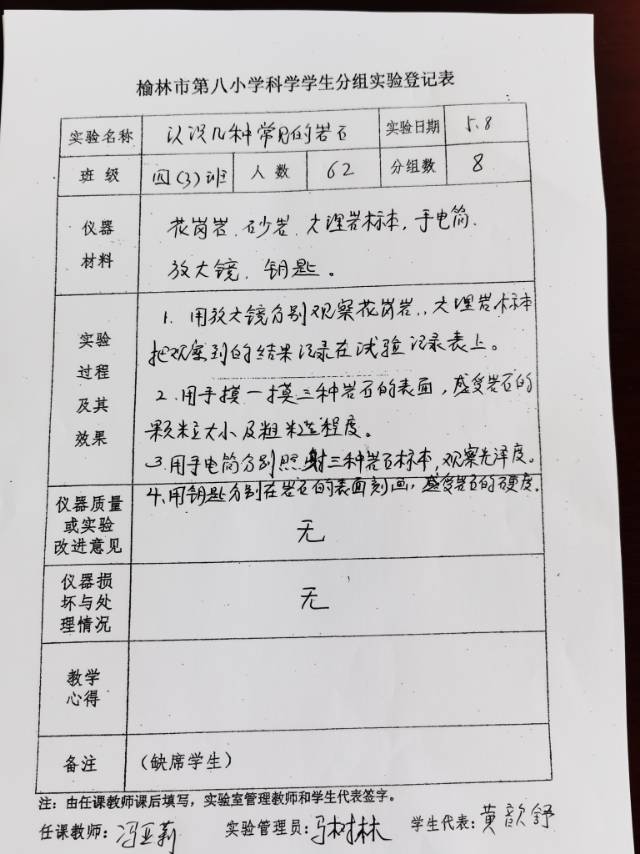 榆林市第八小学科学学生分组实验登记表
实验名称 认识几种常见的岩石 实验日期 5.8
班级 四(3)班 人数 62 分组数 8
仪器材料 花岗岩、砂岩、大理岩标本,手电筒、
放大镜、钥匙。
实验过程及其效果 1. 用放大镜分别观察花岗岩、、大理岩标本
把观察到的结果记录在试验记录表上。
2. 用手摸一摸三种岩石的表面,感受岩石的
颗粒大小及粗糙程度。
3. 用手电筒分别照射三种岩石标本,观察光泽度。
4. 用钥匙分别在岩石的表面刻画,感受岩石的硬度。
仪器质量或实验改进意见 无
仪器损坏与处理情况 无
教学心得
备注 (缺席学生)
注:由任课教师课后填写,实验室管理教师和学生代表签字。
任课教师:冯亚莉 实验管理员:马树林 学生代表:黄歆舒